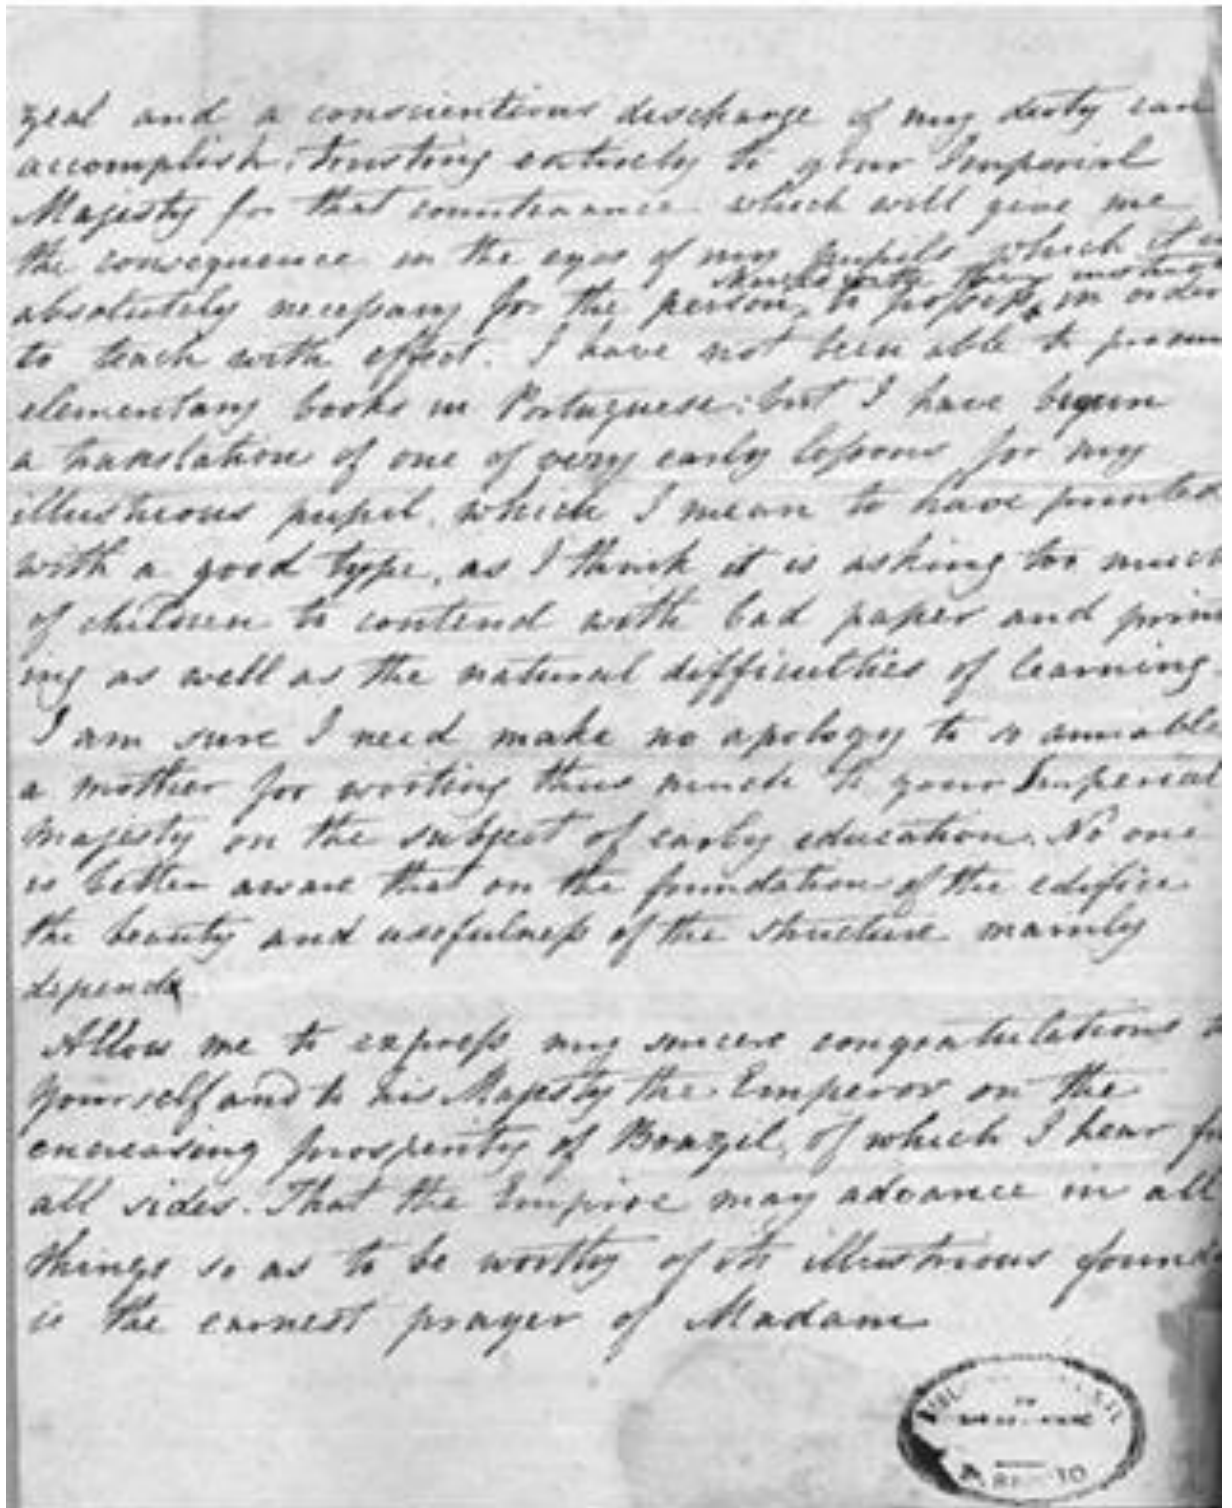 zeal and a conscientious discharge of my duty can
accomplish, trusting entirely to your Imperial
Majesty for that countenance which will give me
the consequence in the eyes of my pupils which it is
absolutely necessary for the person to possess, in order
to teach with effect. I have not been able to
elementary books in Portuguese: but I have begun
a translation of one of very early lessons for my
illustrious pupil, which I mean to have printed
with a good type, as I think it is asking too much
of children to contend with bad paper and print
ing as well as the natural difficulties of learning.
I am sure I need make no apology to so amiable
a mother for writing thus much to your Imperial
Majesty on the subject of early education. No one
is better aware that on the foundation of the edifice
the beauty and usefulness of the structure mainly
depends
Allow me to express my sincere congratulations to
yourself and to his Majesty the Emperor on the
encreasing prosperity of Brazil, of which I hear
all sides. That the Empire may advance in all
things so as to be worthy of its illustrious
is the earnest prayer of Madam